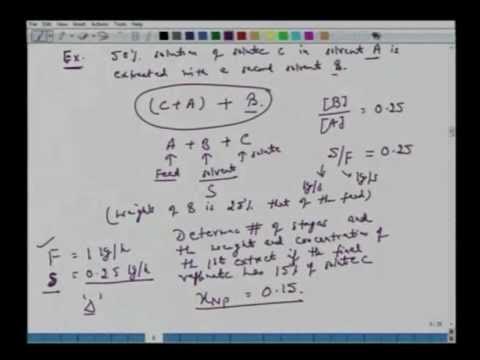 Ex. 50% solution of solute C in solvent A is
extracted with a second solvent B.
(C+A) + B
[B]/[A] = 0.25
A + B + C
Feed solvent solute
S
S/F = 0.25
kg/s kg/s
(weights of B is 25% that of the feed)
F = 1 kg/h
S = 0.25 kg/h
'Δ'
Determine # of stages and
the weight and concentration of
the 1st extract if the final
raffinate has 15% of solute C
xNp = 0.15.